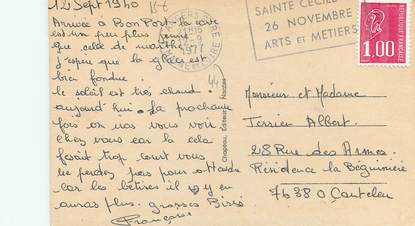 12 Sept 19h0
Arrivée à Bon Port. la voie
est un peu plus jeune
que celle de maman
j'espère que la glace est
bien fondue.
le soleil est très chaud
aujourd'hui. la prochaine
fois on ira vous voir
chez vous car la cela
faisait trop court. vous
ne perdez pas pour attendre
car les bêtises il y en
auras plus. grosses Bises
Françoise
SAINTE CECILE
26 NOVEMBRE
ARTS et METIERS
1977
REPUBLIQUE FRANÇAISE
1.00
Chapeau, Éditeur, Nantes
Monsieur et Madame
Terrien Albert.
28 Rue des Armes
Résidence la Béguinière
74380 Canteleu